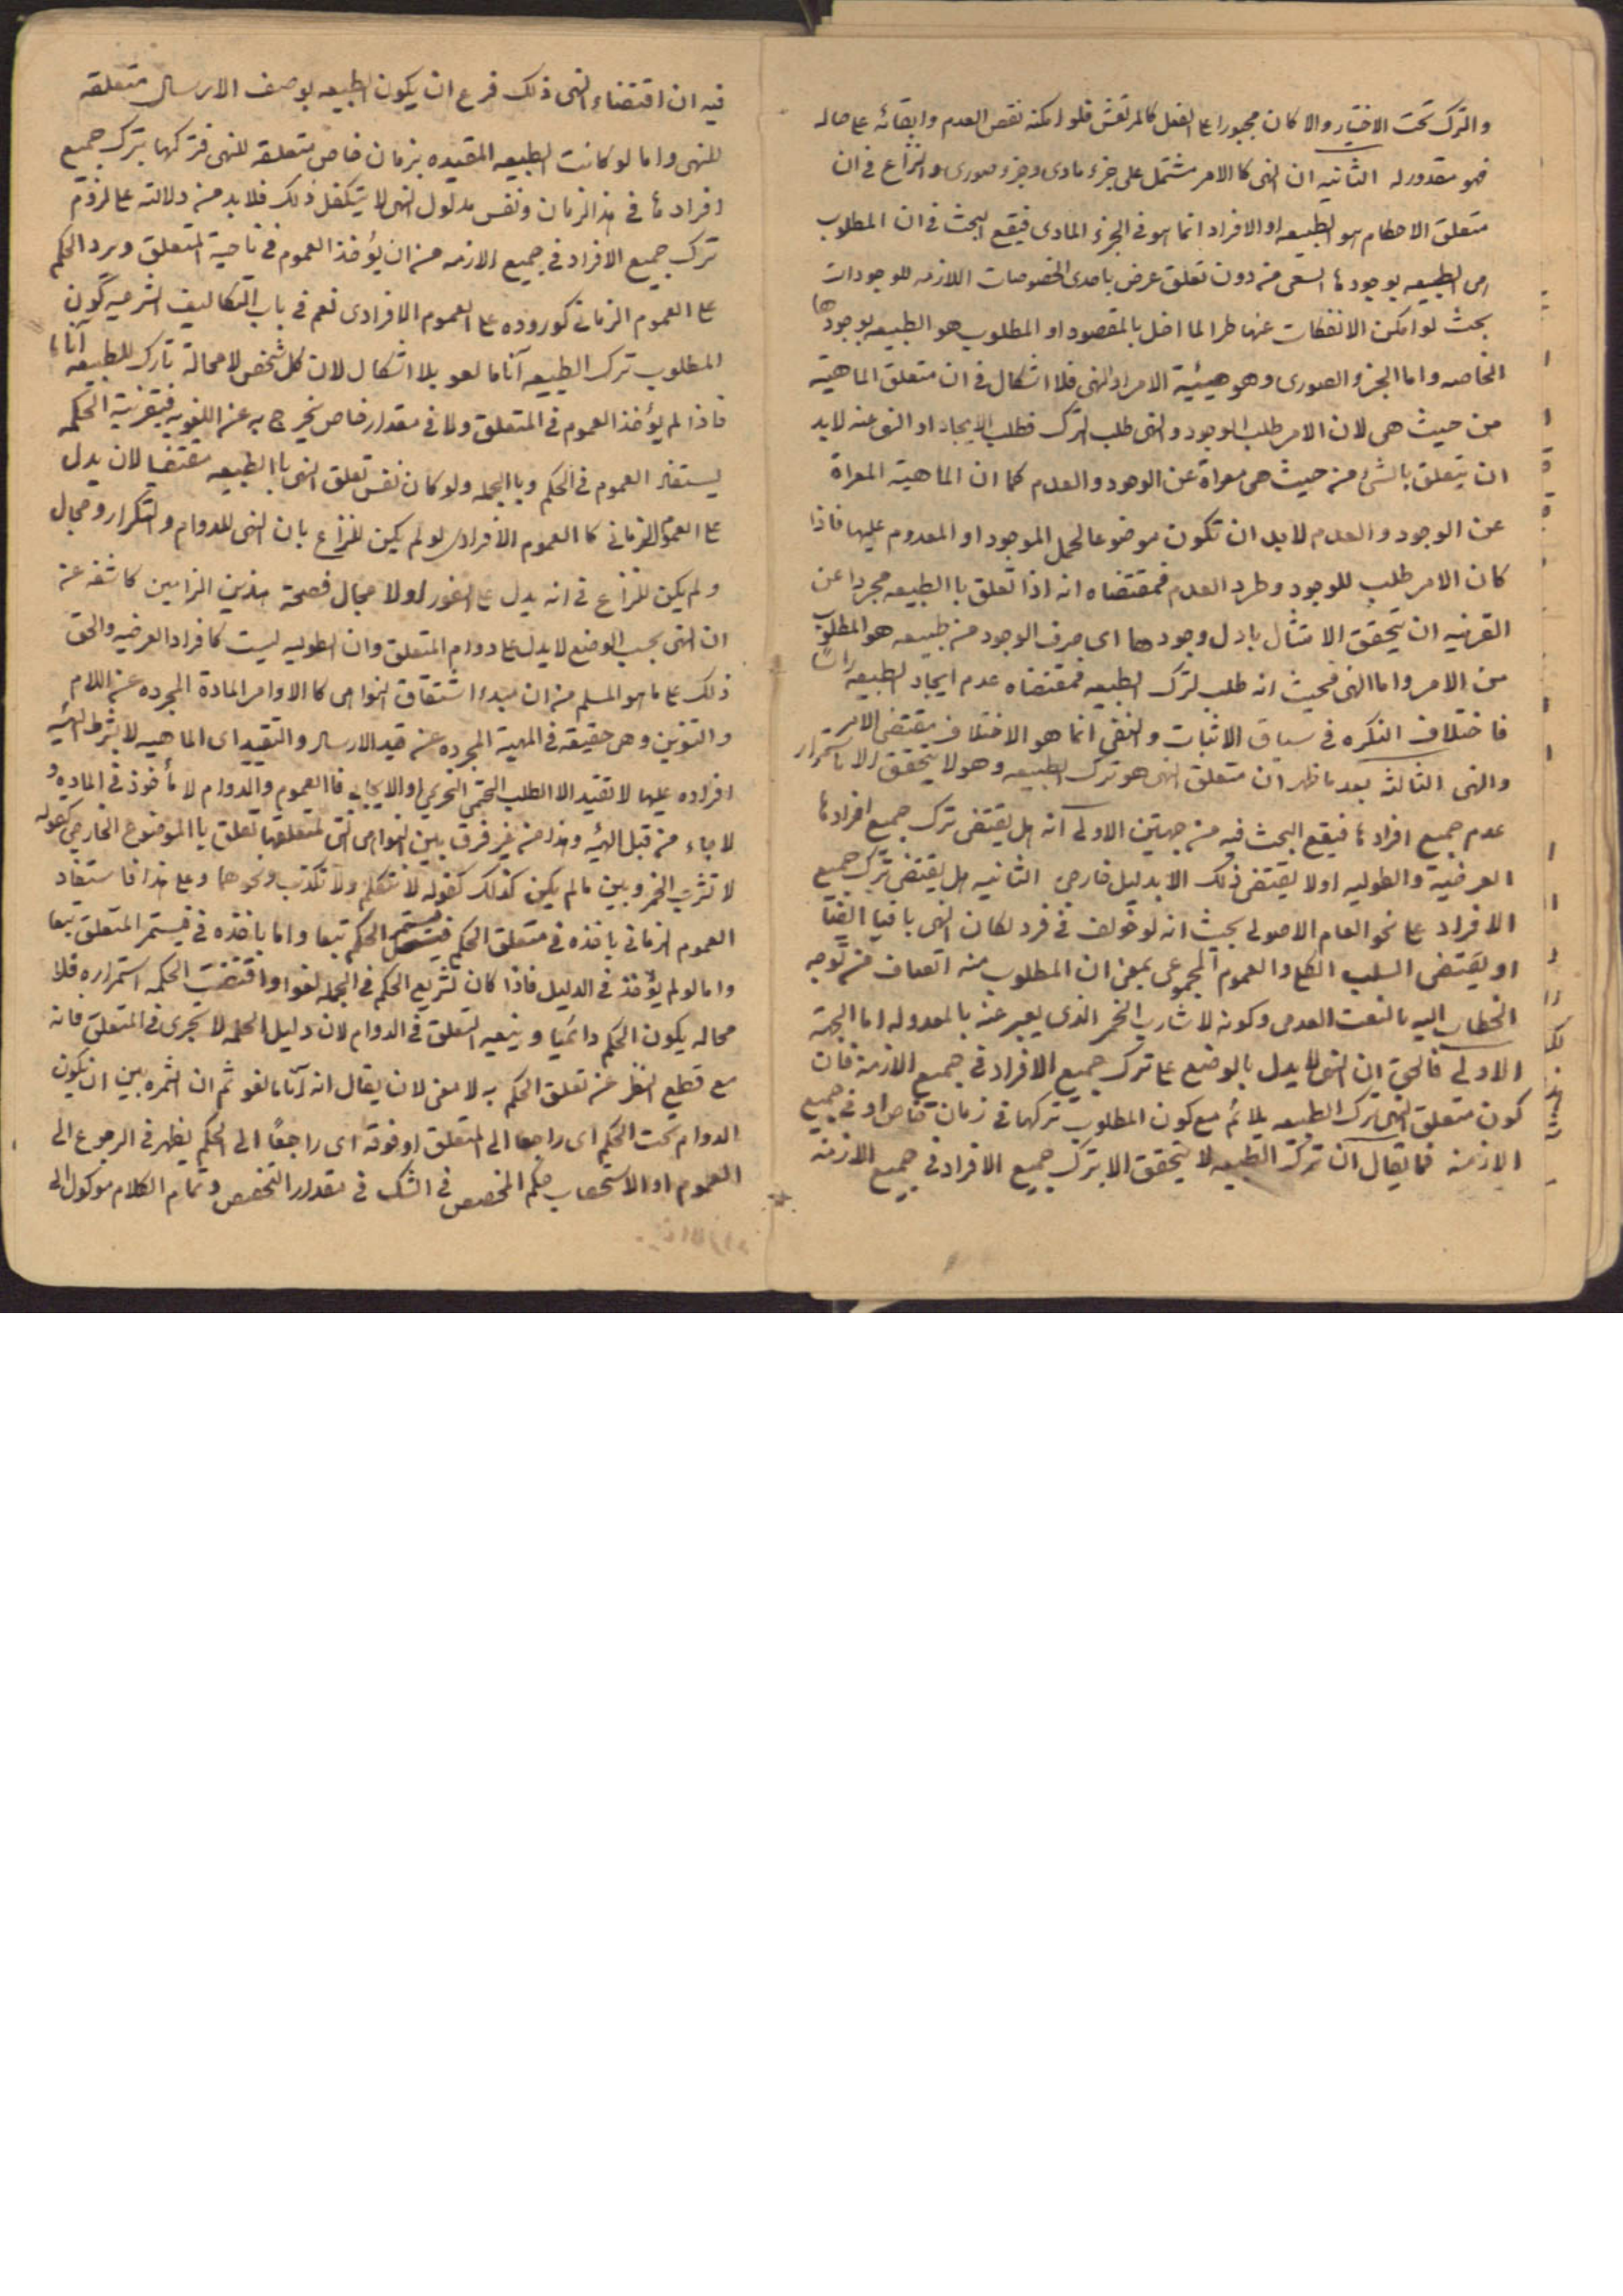 والترك تحت الاختيار والا كان مجبورا على الفعل كالمرتعش فلو امكنه نقض العدم وابقائه على حاله
فهو مقدور له الثانيه ان النهى كالامر مشتمل على جزء مادى وجزء صورى والنزاع فى ان
متعلق الاحكام هو الطبيعه او الافراد انما هو فى الجزء المادى فيقع البحث فى ان المطلوب
هى الطبيعه بوجودها السعى من دون تعلق غرض باحدى الخصوصيات اللازمه للوجودات
بحيث لو امكن الانفكاك عنها طرا لما اخل بالمقصود او المطلوب هو الطبيعه بوجودها
الخاصه واما الجزء الصورى وهو هيئية الامر او النهى فلا اشكال فى ان متعلق الماهية
من حيث هى لان الامر طلب الوجود والنهى طلب الترك فطلب الايجاد او النهى عنه لابد
ان يتعلق بالشئ من حيث هى معراة عن الوجود والعدم كما ان الماهية المعراة
عن الوجود والعدم لابد ان تكون موضوعا لحمل الموجود او المعدوم عليها فاذا
كان الامر طلب للوجود وطرد العدم فمقتضاه انه اذا تعلق بالطبيعه مجردا عن
القرنيه ان يتحقق الامتثال باول وجودها اى صرف الوجود من طبيعه هو المطلوب
من الامر واما النهى فحيث انه طلب لترك الطبيعه فمقتضاه عدم ايجاد الطبيعه راسًا
فاختلاف النكره فى سياق الاثبات والنفى انما هو الاختلاف مقتضى الامر
والنهى الثالثه بعد ما ظهر ان متعلق النهى هو ترك الطبيعه وهو لا يتحقق الا باستمرار
عدم جميع افرادها فيقع البحث فيه من جهتين الاولى انه هل يقتضى ترك جميع افرادها
العرضية والطوليه اولا يقتضى ذلك الا بدليل خارجى الثانيه هل يقتضى ترك جميع
الافراد على نحو العام الاصولى بحيث انه لو خولف فى فرد لكان النهى باقيا ايضًا
او يقتضى السلب الكلى والعموم المجموعى بمعنى ان المطلوب منه اتصاف من توجه
الخطاب اليه بالنعت العدمى وكونه لا شارب الخمر الذى يعبر عنه بالمعدوله اما الجهة
الاولى فالحق ان النهى لا يدل بالوضع على ترك جميع الافراد فى جميع الازمنة فان
كون متعلق النهى ترك الطبيعه يلائم مع كون المطلوب تركها فى زمان خاص او فى جميع
الازمنه فما يقال ان ترك الطبيعه لا يتحقق الا بترك جميع الافراد فى جميع الازمنه
فيه ان اقتضاء النهى ذلك فرع ان يكون الطبيعه بوصف الارسال متعلقه
للنهى واما لو كانت الطبيعه المقيده بزمان خاص متعلقه للنهى فتركها بترك جميع
افرادها فى هذا الزمان ونفس مدلول النهى لا يتكفل ذلك فلا بد من دلالته على لزوم
ترك جميع الافراد فى جميع الازمنه من ان يؤخذ العموم فى ناحية المتعلق ويرد الحكم
على العموم الزمانى كوروده على العموم الافرادى نعم فى باب التكاليف الشرعيه كون
المطلوب ترك الطبيعه آناما لغو بلا اشكال لان كل شخص لامحالة تارك للطبيعه آناما
فاذا لم يؤخذ العموم فى المتعلق ولا فى مقدار خاص يخرج به عن اللغويه فبقرنية الحكمه
يستفاد العموم فى الحكم وبالجمله ولو كان نفس تعلق النهى بالطبيعه مقتضيا لان يدل
على العموم الزمانى كالعموم الافرادى لو لم يكن للنزاع بان النهى للدوام والتكرار مجال
ولم يكن للنزاع فى انه يدل على الفور اولا مجال فصحة هذين النزاعين كاشفه عن
ان النهى بحسب الوضع لا يدل على دوام المتعلق وان الطوليه ليست كافراد العرضيه والحق
ذلك على ما هو المسلم من ان مبدء اشتقاق النواهى كالاوامر المادة المجرده عن اللام
والتنوين وهى حقيقه فى المهية المجرده عن قيد الارسال والتقييد اى الماهيه لا بشرط الهيئه
افراده عليها لا تقيد الا الطلب الحتمى التحريمى او الايجابى فالعموم والدوام لا مأخوذ فى الماده و
لا جاء من قبل الهيئه وهذا من غير فرق بين النواهى التى لمتعلقها تعلق بالموضوع الخارجى كقوله
لا تشرب الخمر وبين ما لم يكن كذلك كقوله لا تتكلم ولا تكذب ونحوهما وعلى هذا فاستفاد
العموم الزمانى باخذه فى متعلق الحكم فيستمر الحكم تبعا واما باخذه فى فيستمر المتعلق تبعا
واما لو لم يؤخذ فى الدليل فاذا كان تشريع الحكم فى الجمله لغوا واقتضت الحكمه استمراره فلا
محاله يكون الحكم دائميا ويتبعه المتعلق فى الدوام لان دليل الحكمه لا تجرى فى المتعلق فانه
مع قطع النظر عن تعلق الحكم به لا معنى لان يقال انه آناما لغو ثم ان الثمره بين ان يكون
الدوام تحت الحكم اى راجعا الى المتعلق او فوقه اى راجعًا الى الحكم يظهر فى الرجوع الى
العموم او الاستصحاب حكم المخصص فى الشك فى مقدار التخصص وتمام الكلام موكول الى